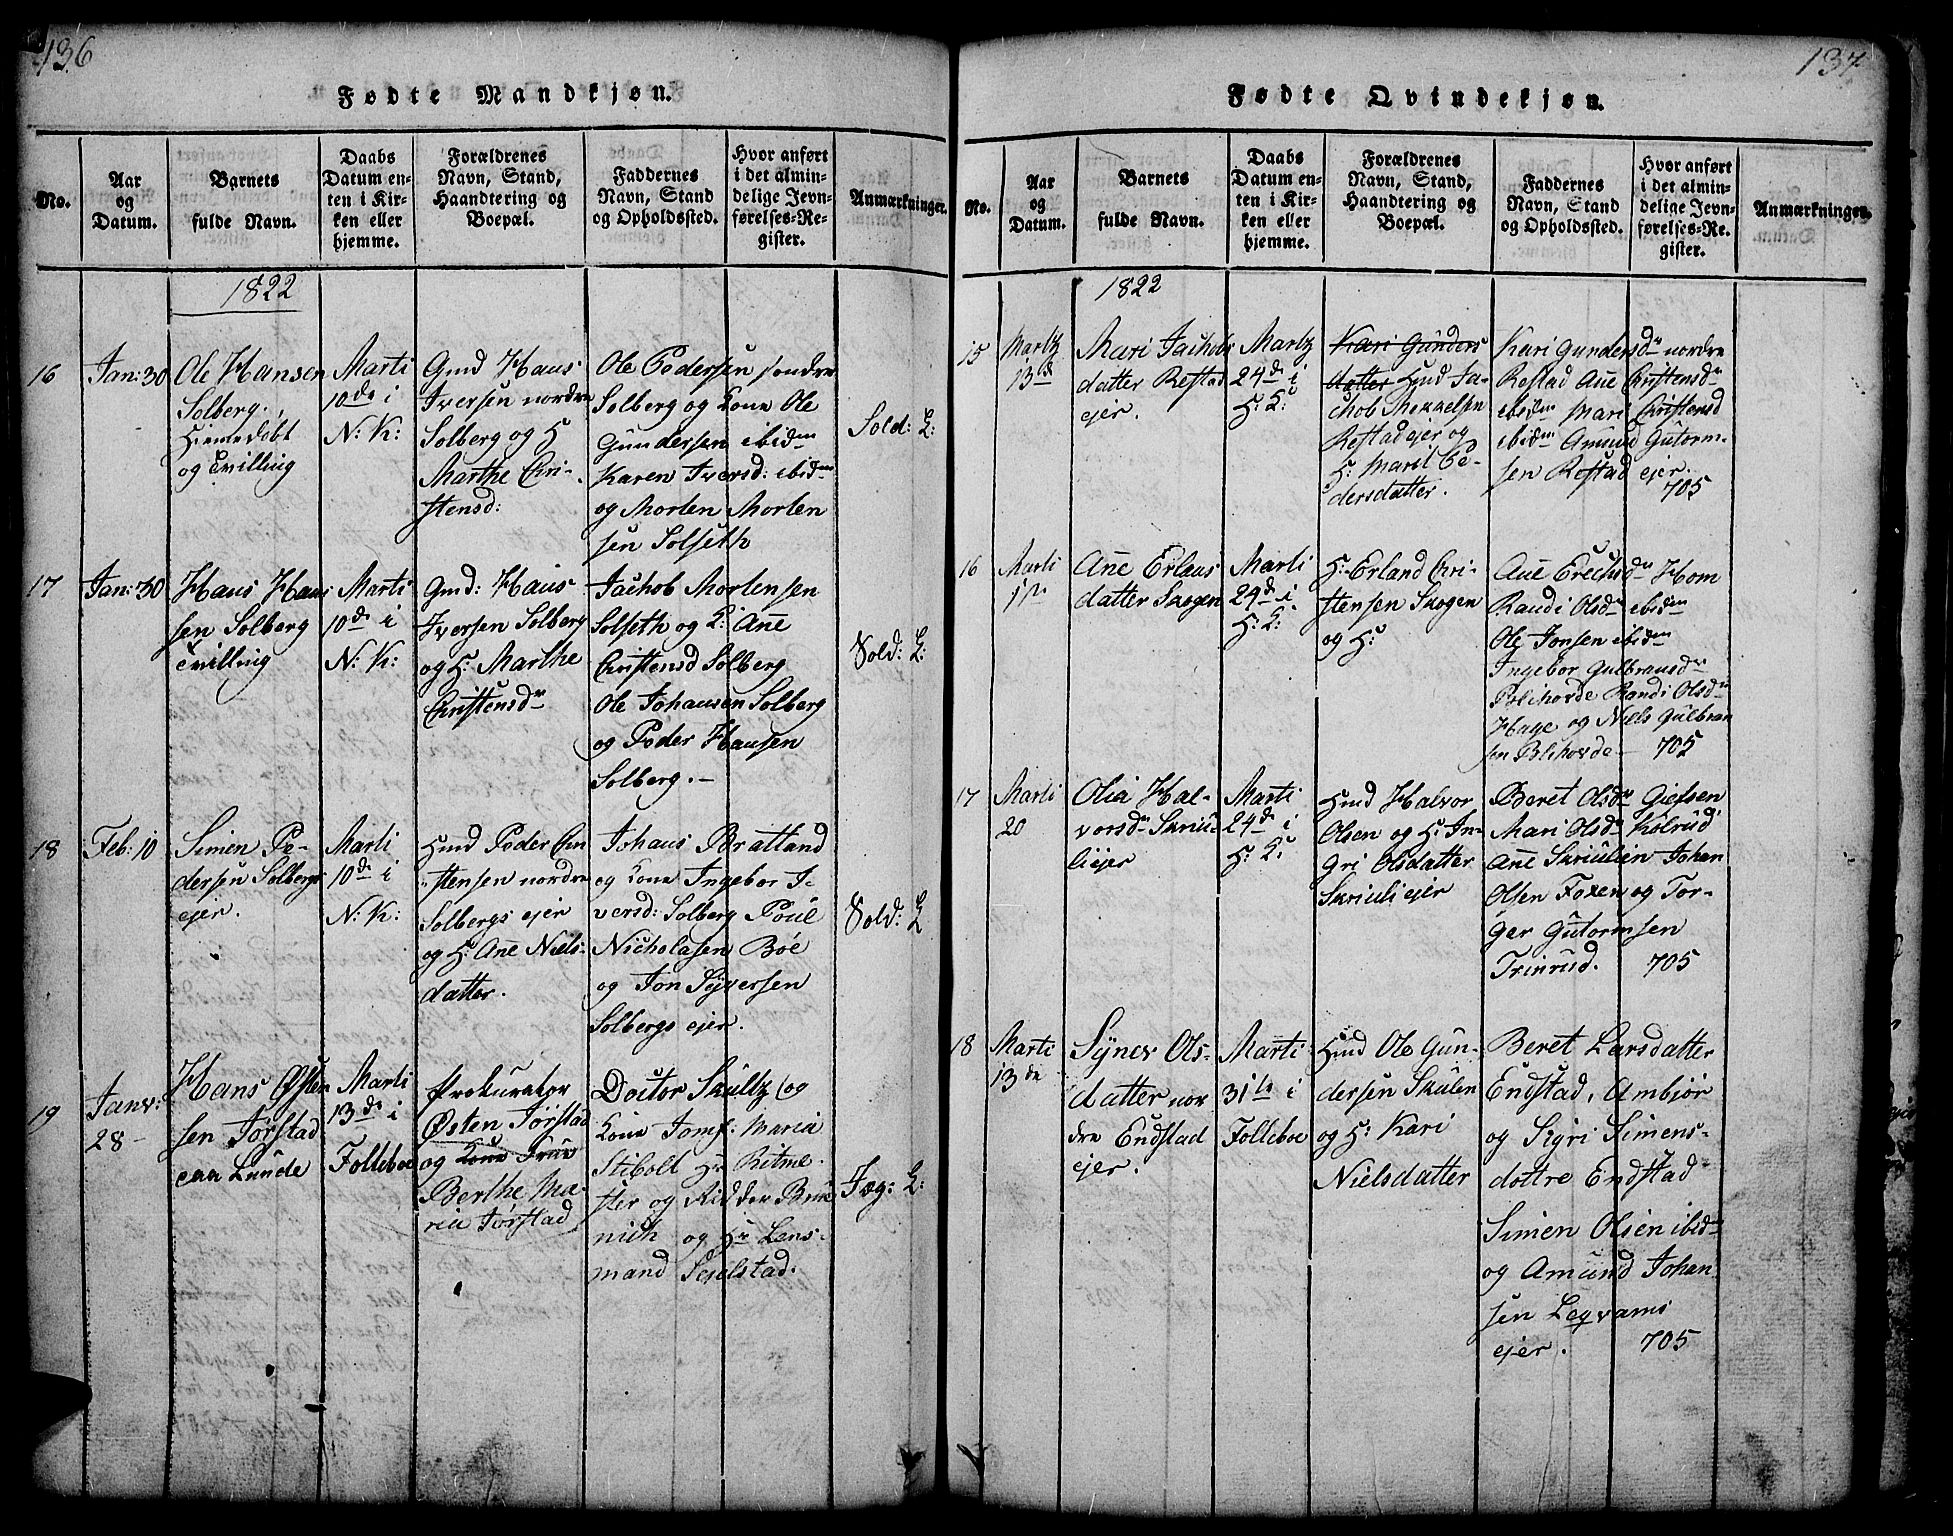 136
Fødte Mandkjøn.
No.
Aar
og
Datum.
Barnets
fulde Navn.
Daabs
Datum en-
ten i Kir-
ken eller
hjemme.
Forældrenes
Navn, Stand,
Haandtering og
Boepæl.
Faddernes
Navn, Stand
og Opholdssted.
Hvor anført
i det almin-
delige Jevn-
førelses-Re-
gister.
Anmærkninger.
1822
16
Jan: 30
Ole Hansen
Solberg.,
Hiemedøbt
og Tvilling
Marti
10de i
N: K:
Gmd Hans
Iversen nordre
Solberg og H
Marthe Chri-
stensd:
Ole Pedersen søndre
Solberg og Kone Ole
Gundersen ibidm
Karen Iversd: ibidm
og Morten Morten
sen Solseth
Sold: L:
17
Jan: 30
Hans Han
sen Solberg
Tvilling
Marti
10de i
N: K:
Gmd: Hans
Iversen Solberg
og H: Marthe
Christensdr
Jachob Mortensen
Solseth og K: Ane
Christensd Solberg
Ole Johansen Solberg
og Peder Hansen
Solberg.-
Sold: L:
18
Feb: 10
Simen Pe-
dersen Solbergs
ejer.
Marti
10de i
N: K:
Hmd Peder Chri
stensen nordre
Solbergs ejer
og H: Ane Niels-
datter.
Johans Bratland
og Kone Ingebor I-
versd: Solberg Poul
Nicholasen Böe
og Jon Syversen
Solbergs ejer.
Sold: L
19
Janv:
28-
Hans Østen
sen Jørstad
paa Lunde
Marti
13de i
Folleboe
Prokurator
Østen Jørstad
og Kone Frue
Berthe Ma-
ria Jørstad
Doctor Skultz og
Kone Jomf: Maria
Stibolt Hr Ritme-
ster og Ridder Brü
nich og Hr Lens-
mand Segelstad.
Fog: L:
137
Fødte Qvindekjøn.
No.
Aar
og
Datum.
Barnets
fulde Navn.
Daabs
Datum en-
ten i Kir-
ken eller
hjemme.
Forældrenes
Navn, Stand,
Haandtering og
Boepæl.
Faddernes
Navn, Stand
og Opholdssted.
Hvor anført
i det almin-
delige Jevn-
førelses-Re-
gister.
Anmærkninger.
1822
15
Martz
13de
Mari Jachobs
datter Restad
ejer.
Martz
24de i
H: K:
Kari Gunders
datter Hmd Ja-
chob Mekkelsen
Restadejer og
H: Marit Pe-
dersdatter.
Kari Gundersdr nordre
Restad Ane Christensdr
ibidm Mari Christensd
ibidm Amund Gutorm-
sen Restad ejer.
705
16
Marti
Ane Erlans
datter Skogen
Marti
24de i
H: K:
H: Erland Chri-
stensen Skogen
og H:
Hom
Randi Olsdr ibidm
Ole Jonsen ibidm
Ingebor Gulbransdr
Blihovde Randi Olsdr
Hage og Niels Gulbran
sen Blihovde- 705
17
Marti
20
Olia Hal-
vorsdr Skriu-
liejer
Marti
24de i
H: K:
Hmd Halvor
Olsen og H: In-
gri Olsdatter
Skriuli ejer
Beret Olsdr Giefsen
Mari Olsdr Kolrud
Ane Skriulien Johan
Olsen Foxen og Tor-
ger Gutormsen
Trinrud. 705
18
Marti
13de
Synev Ols-
datter nor
dre Endstad
ejer.
Marti
31te i
Folleboe
Hmd Ole Gun-
dersen Skulen
og H: Kari
Nielsdatter
Beret Larsdatter
Endstad, Ambjör
og Sigri Simens-
dottre Endstad
Simen Olsen ibidm
og Amund Johan
sen Legvams
ejer. 705